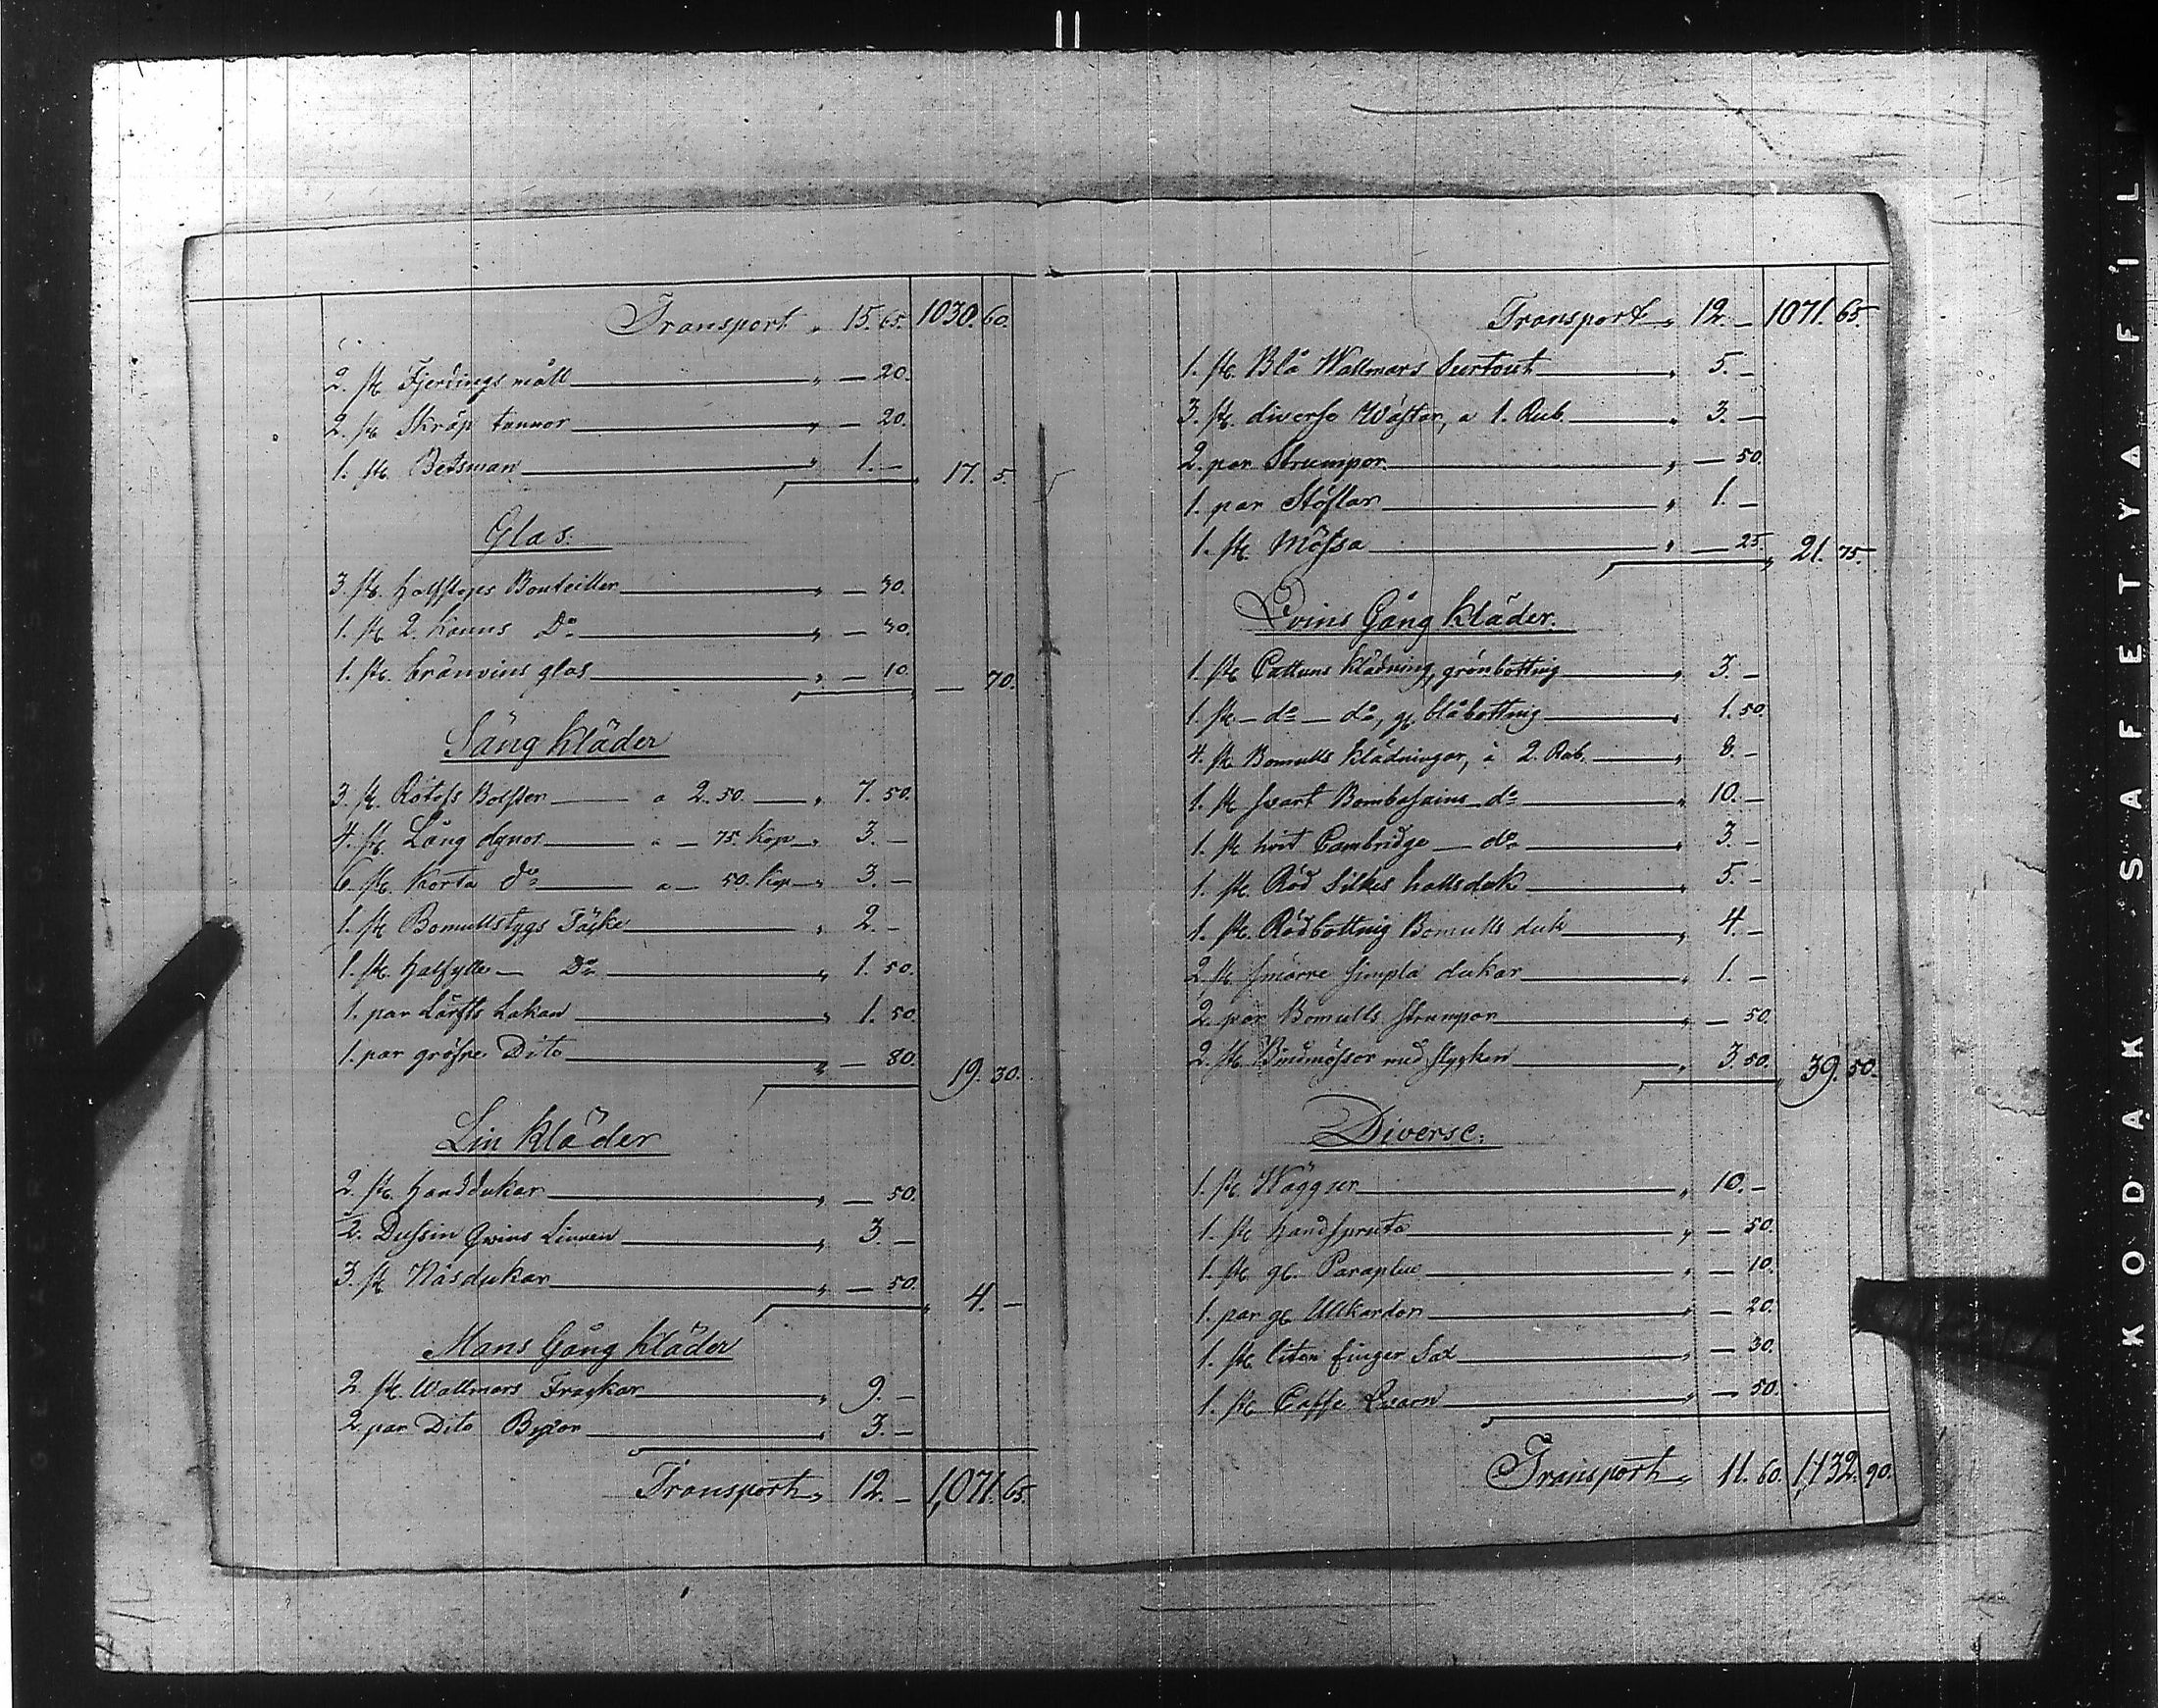 Transport „ 15. 65. 1030. 60.
2. st. Fjerdings mått „ — 20.
2. st. Skräp tunnor „ — 20.
1. st. Betsman „ 1. — 17. 5.
Glas.
3. st. halfstops Bouteiller „ — 30.
1. st. 2. Kanns Do „ — 30.
1. st. bränvins glas „ — 10. — 70.
Säng Kläder
3. st. Bolster a 2. 50. „ 7. 50.
4. st. Lång dynor a — 75. Kop „ 3. —
6. st. Korta do a — 50. Kop „ 3. —
1. st. Bomullstygs Täcke „ 2. —
1. st. halfylle — Do „ 1. 50.
1. par Lärfts Lakan „ 1. 50.
1. par gröfre Dito „ — 80. 19. 30.
Lin Kläder
2. st. Handdukar „ — 50.
½. Dussin Qvins Linnen „ 3. —
3. st. Näsdukar „ — 50. 4. —
Mans Gång Kläder
2. st. Wallmars Frackar „ 9. —
2 par Dito Byxor „ 3. —
Transport „ 12. — 1,071. 65.
Transport „ 12. — 1071. 65.
1. st. Blå Wallmars Surtout „ 5. —
3. st. diverse Wästar, a 1. Rub. „ 3. —
2. par Strumpor „ — 50.
1. par Stöflar „ 1. —
1. st. Mössa „ — 25. 21. 75.
Qvins Gång Kläder.
1. st. Cattuns Klädning, grönbottnig „ 3. —
1. st. — do — do, gl. blåbottnig „ 1. 50.
4. st. Bomulls Klädningar, à 2. Rub. „ 8. —
1. st. svart Bombasains do „ 10. —
1. st. hvit Cambridge — do „ 3. —
1. st. Röd Silkes halsduk „ 5. —
1. st. Rödbottnig Bomulls duk „ 4. —
2. st. smärre simpla dukar „ 1. —
2. par Bomulls strumpor „ — 50.
2. st. Bindmössor med stycken „ 3. 50. 39. 50.
Diverse.
1. st. Wäggur „ 10. —
1. st. Handspruta „ — 50.
1. st. gl. Paraplue „ — 10.
1. par gl. Ullkardor „ — 20.
1. st. liten finger Sax „ — 30.
1. st. Caffe Qvarn „ — 50.
Transport „ 11. 60. 1,132. 90.
KODAK SAFETY A FILM